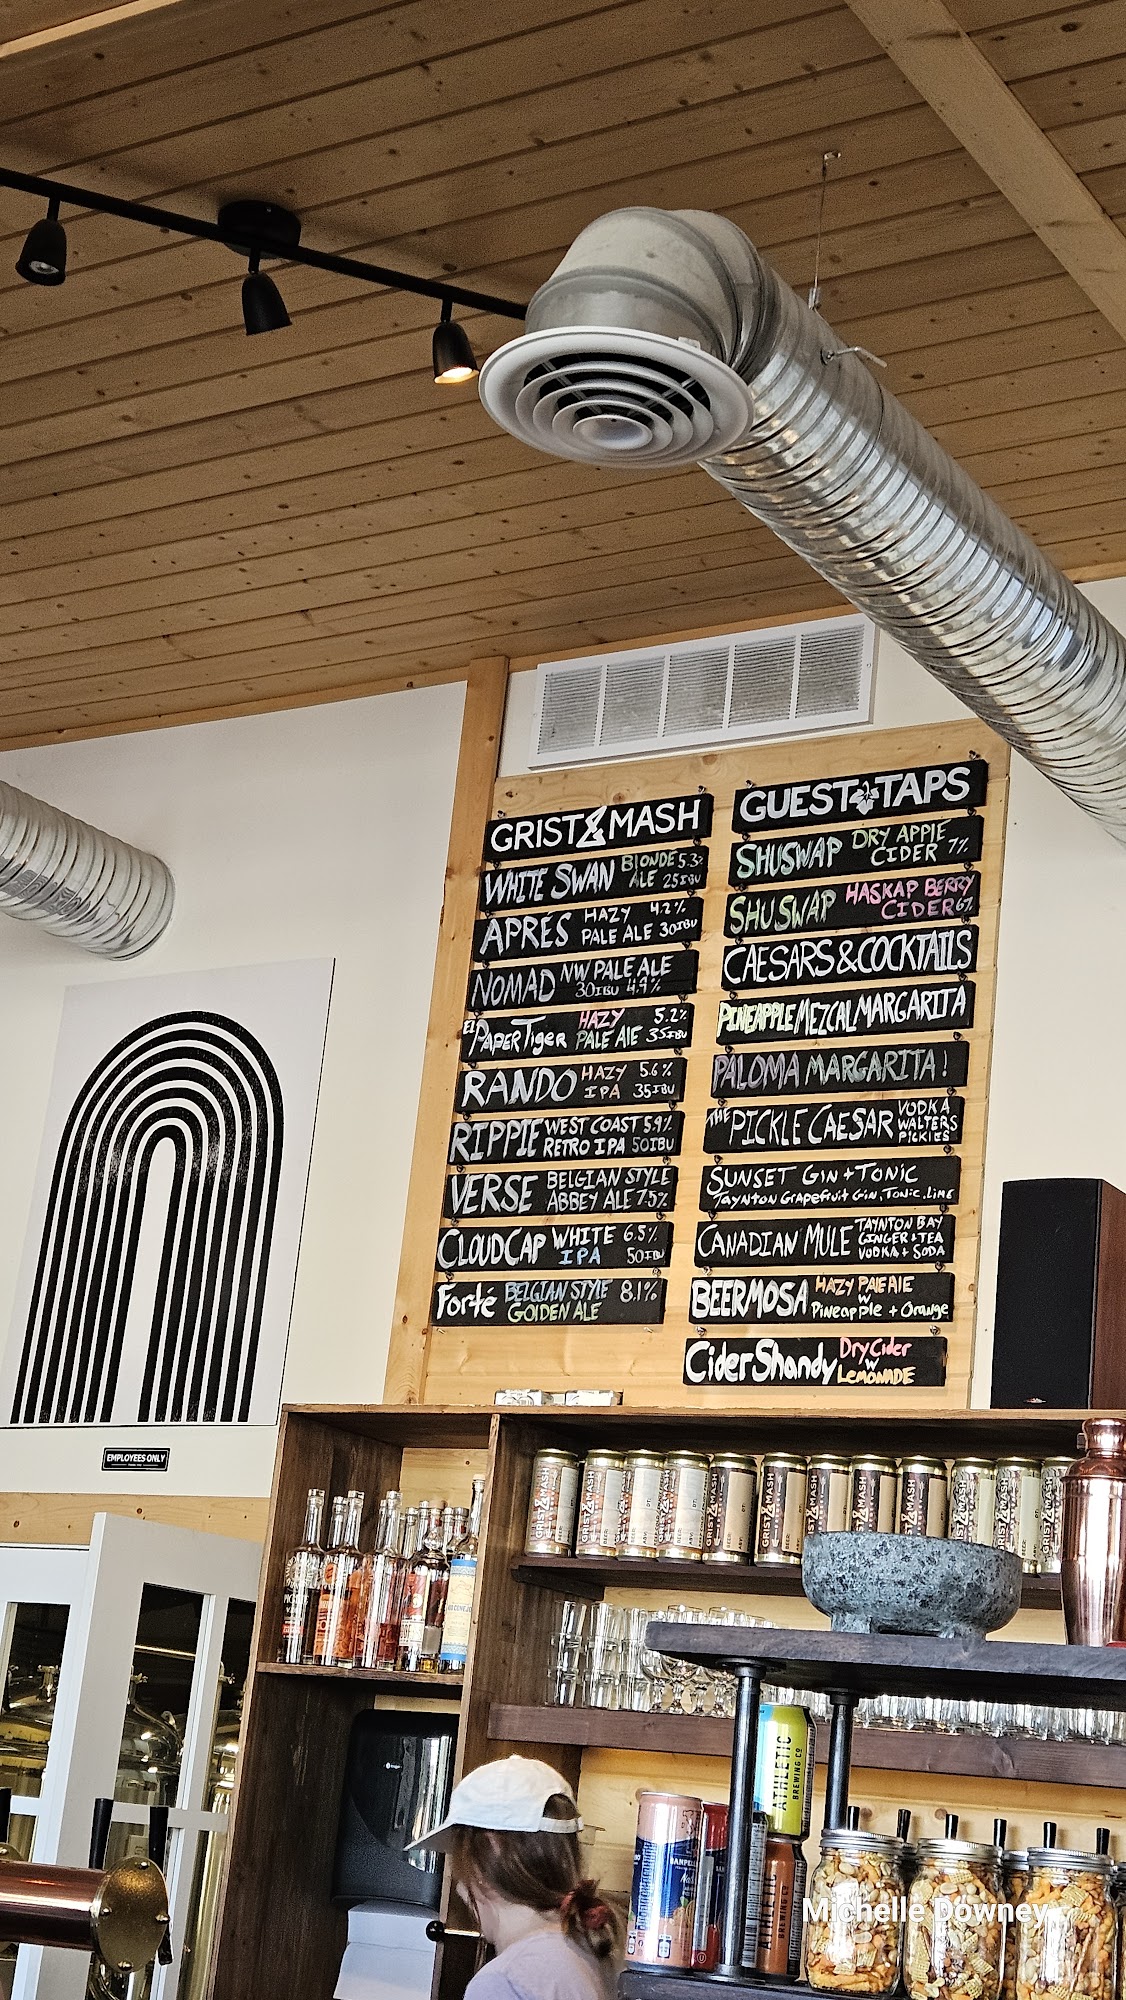 GRIST & MASH
WHITE SWAN BLONDE ALE 5.3% 25 IBU
APRÉS HAZY PALE ALE 4.2% 30 IBU
NOMAD NW PALE ALE 30 IBU 4.9%
EL PAPER TIGER HAZY PALE ALE 5.2% 35 IBU
RANDO HAZY IPA 5.6% 35 IBU
RIPPIE WEST COAST RETRO IPA 5.9% 50 IBU
VERSE BELGIAN STYLE ABBEY ALE 7.5%
CLOUDCAP WHITE IPA 6.5% 50 IBU
Forté BELGIAN STYLE GOLDEN ALE 8.1%
GUEST TAPS
SHUSWAP DRY APPLE CIDER 7%
SHUSWAP HASKAP BERRY CIDER 6%
CAESARS & COCKTAILS
PINEAPPLE MEZCAL MARGARITA
PALOMA MARGARITA!
THE PICKLE CAESAR VODKA WALTERS PICKLES
SUNSET GIN + TONIC
TAYNTON GRAPEFRUIT GIN, TONIC, LIME
CANADIAN MULE TAYNTON BAY GINGER + TEA VODKA + SODA
BEERMOSA HAZY PALE ALE W Pineapple + Orange
Cider Shandy Dry Cider W LEMONADE
EMPLOYEES ONLY
GRIST & MASH
GRIST & MASH
GRIST & MASH
GRIST & MASH
ATHLETIC
BREWING CO
ATHLETIC
BREWING CO
Michelle Downey